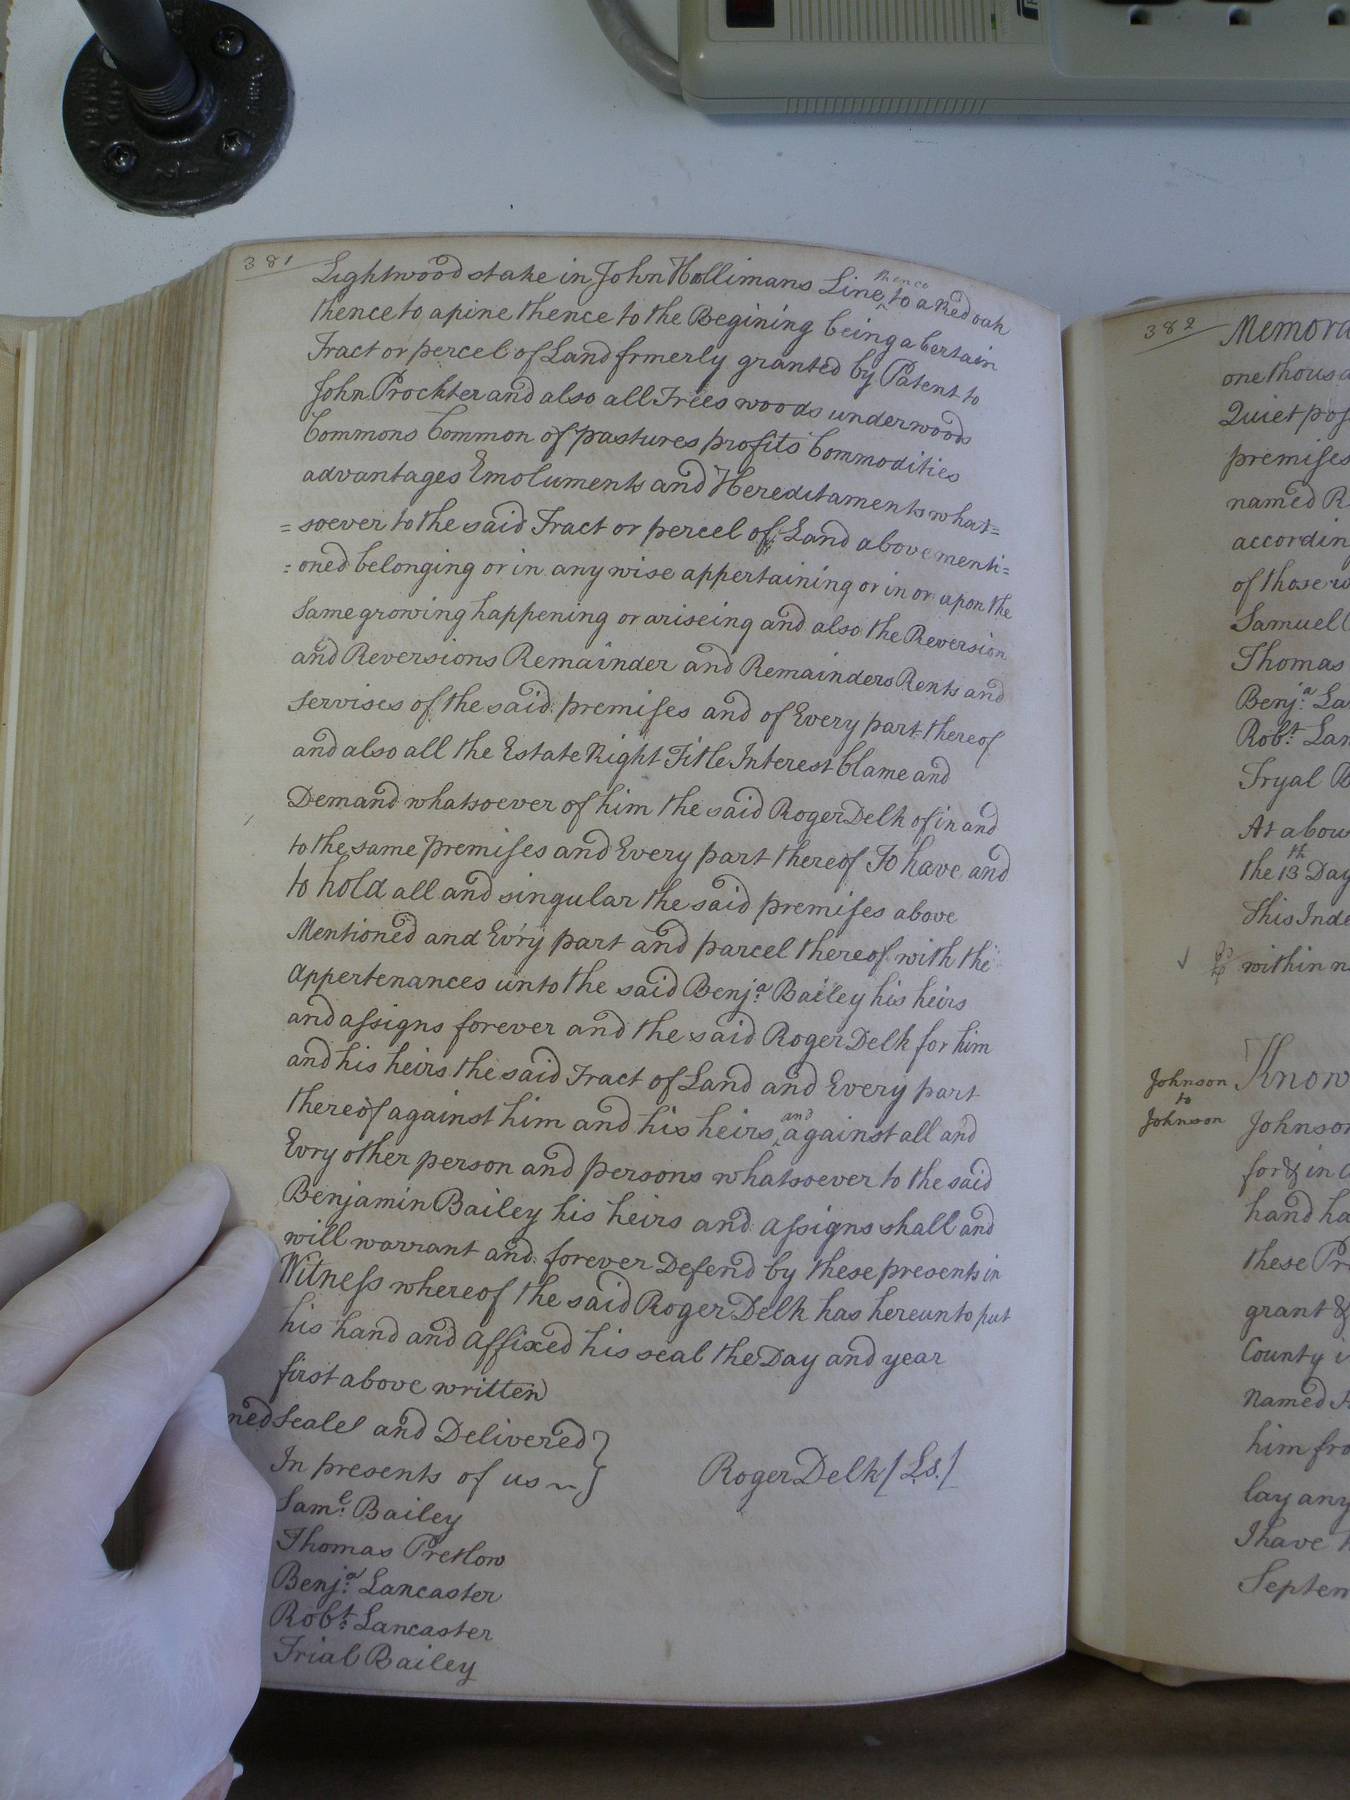 381
Lightwood stake in John Hollimans Line thence to a Red oak
thence to a pine thence to the Begining being a Certain
Tract or percel of Land frmerly granted by Patent to
John Prockter and also all Trees woods underwoods
Commons Common of pastures profits Commodities
advantages Emoluments and Hereditaments what=
=soever to the said Tract or percel of Land above menti=
=oned belonging or in any wise appertaining or in or upon the
Same growing happening or ariseing and also the Reversion
and Reversions Remainder and Remainders Rents and
servises of the said premises and of Every part thereof
and also all the Estate Right Title Interest Clame and
Demand whatsoever of him the said Roger Delk of in and
to the same premises and Every part thereof To have and
to hold all and singular the said premises above
Mentioned and Ev'ry part and parcel thereof with the
appertenances unto the said Benja. Bailey his heirs
and assigns forever and the said Roger Delk for him
and his heirs the said Tract of Land and Every part
thereof against him and his heirs and against all and
Evry other person and persons whatsoever to the said
Benjamin Bailey his heirs and assigns shall and
will warrant and forever Defend by these presents in
Witness whereof the said Roger Delk has hereunto put
his hand and affixed his seal the Day and year
first above written
ned Sealed and Delivered
In presents of us
Roger Delk [Ls.]
Saml. Bailey
Thomas Pretlow
Benja. Lancaster
Robt. Lancaster
Trial Bailey
382
Memora
one thousa
Quiet pos
premises
named R
accordin
of those w
Samuel
Thomas
Benja. La
Robt. Lan
Tryal B
At a Cou
the 13th Day
this Inde
within n
Johnson
to
Johnson
Know
Johnson
for & in C
hand ha
these Pr
grant &
County i
Named
him fro
lay any
I have
Septem